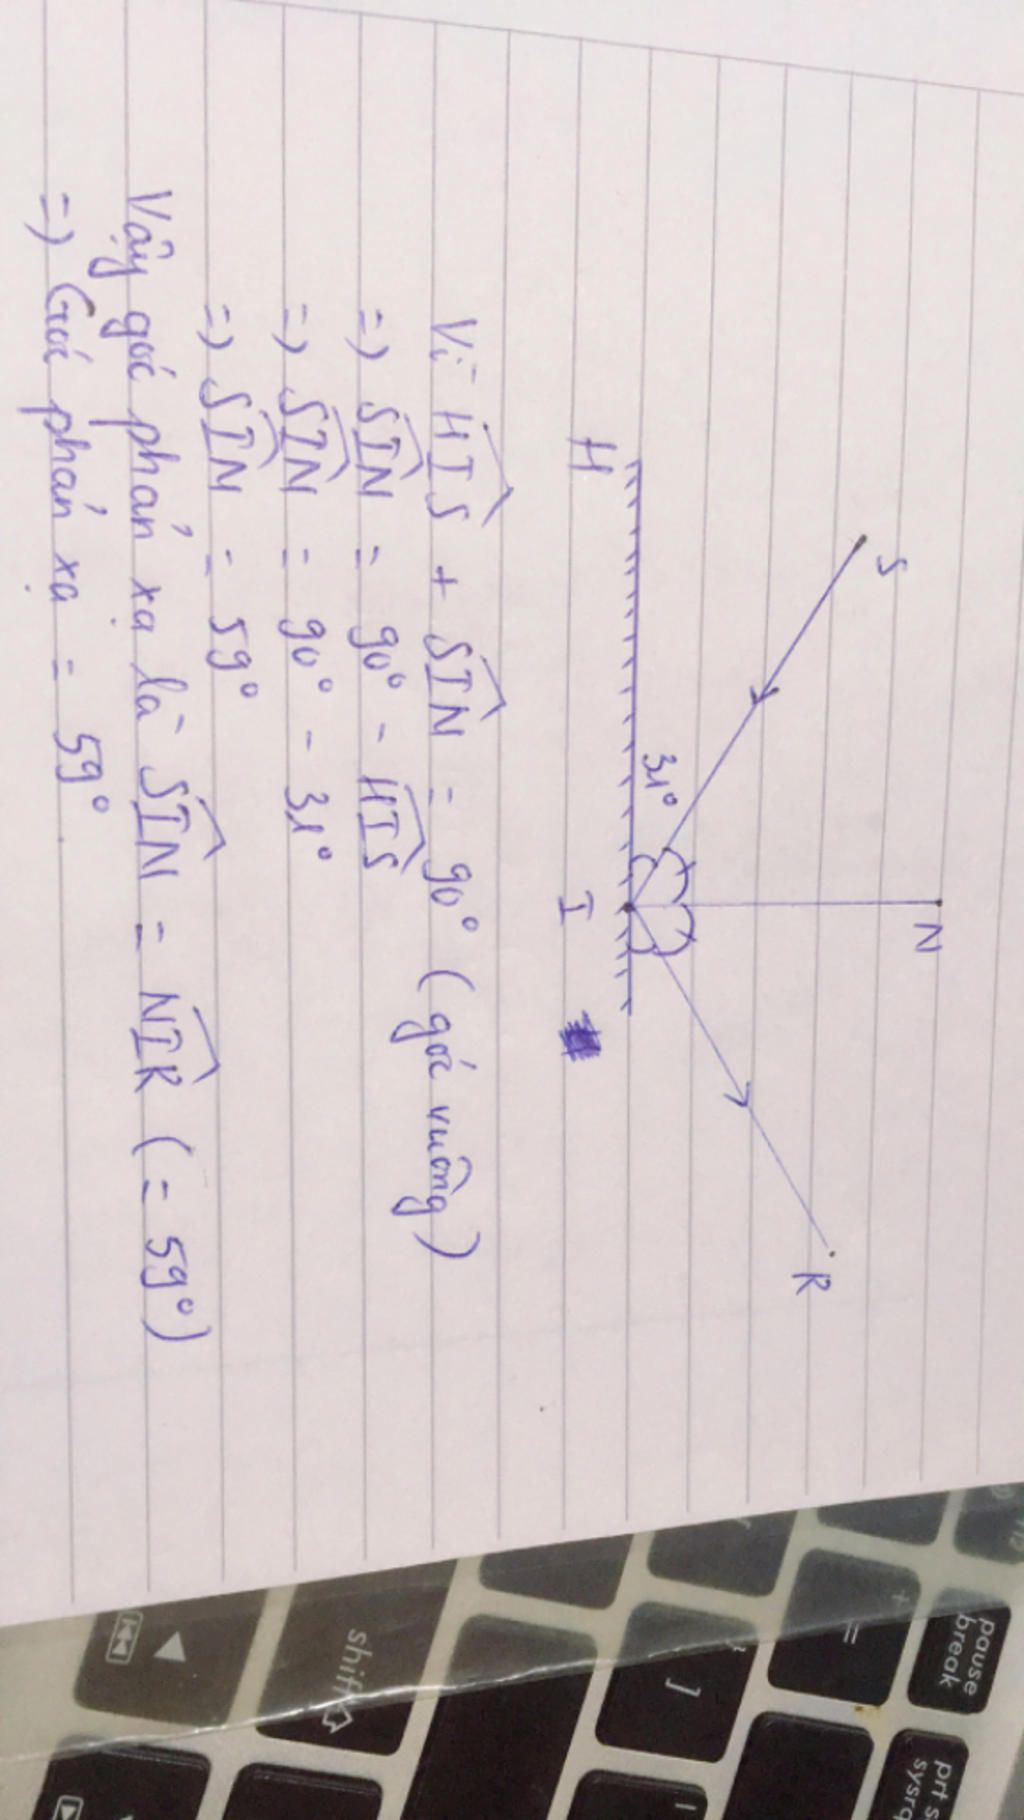 S
N
R
31°
H
I
Vì HIS + SIN = 90° (góc vuông)
=> SIN = 90° - HIS
=> SIN = 90° - 31°
=> SIN = 59°
Vậy góc phản xạ là SIN = NIR (= 59°)
=> Góc phản xạ = 59°
pause
break
prt s
sysrq
+
=
]
shift